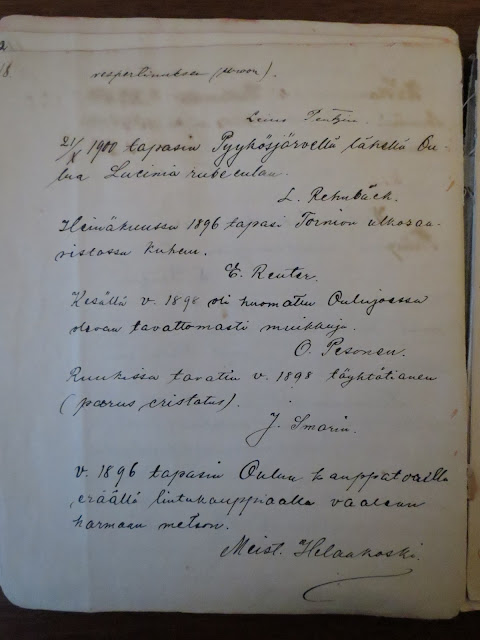 2
18
vespertinuksen (            ).
Leius Pentzin.
21/X 1900 tapasin Pyykösjärvellä lähellä Ou-
lua Lucinia rubeculan.
L. Rehnbäck.
Heinäkuussa 1896 tapasi Tornion ulkosaa-
ristossa kuhan.
E. Reuter.
Kesällä v. 1898 oli huomattu Oulujoessa
olevan tavattomasti muikkuja.
O. Pesonen.
Ruukissa tavatin v. 1898 töyhtötiainen
(parus cristatus).
J. Smarin.
v. 1896 tapasin Oulun kauppatorilla
eräällä lintukauppiaalla vaalean
harmaan metson.
Meist. Helaakoski.